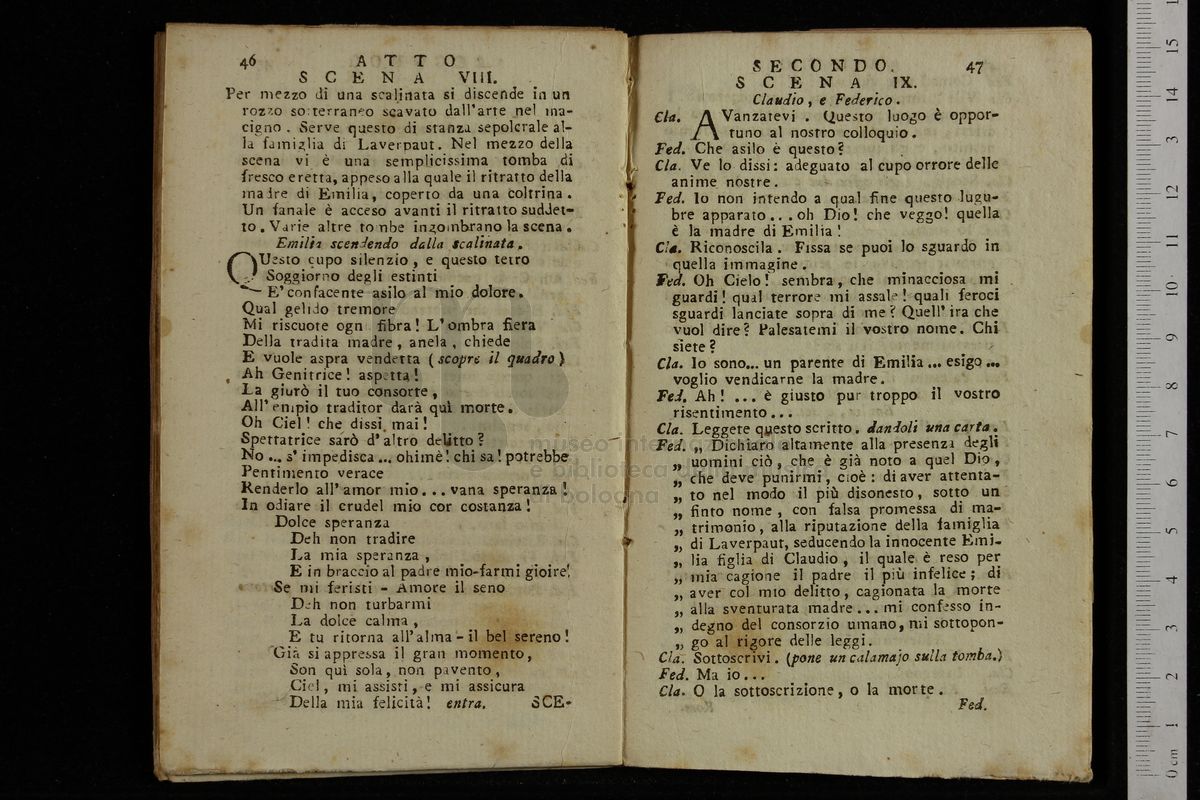 46 ATTO
SCENA VIII.
Per mezzo di una scalinata si discende in un
rozzo sotterraneo scavato dall'arte nel ma-
cigno. Serve questo di stanza sepolcrale al-
la famiglia di Laverpaut. Nel mezzo della
scena vi è una semplicissima tomba di
fresco eretta, appeso alla quale il ritratto della
madre di Emilia, coperto da una coltrina.
Un fanale è acceso avanti il ritratto suddet-
to. Varie altre tombe ingombrano la scena.
Emilia scendendo dalla scalinata.
QUesto cupo silenzio, e questo tetro
Soggiorno degli estinti
E' confacente asilo al mio dolore.
Qual gelido tremore
Mi riscuote ogn fibra! L'ombra fiera
Della tradita madre, anela, chiede
E vuole aspra vendetta (scopre il quadro)
Ah Genitrice! aspetta!
La giurò il tuo consorte,
All'empio traditor darà quì morte.
Oh Ciel! che dissi mai!
Spettatrice sarò d'altro delitto?
No ... s'impedisca ... ohimè! chi sa! potrebbe
Pentimento verace
Renderlo all'amor mio... vana speranza!
In odiare il crudel mio cor costanza!
Dolce speranza
Deh non tradire
La mia speranza,
E in braccio al padre mio-farmi gioire!
Se mi feristi - Amore il seno
Deh non turbarmi
La dolce calma,
E tu ritorna all'alma - il bel sereno!
Già si appressa il gran momento,
Son quì sola, non pavento,
Ciel, mi assisti, e mi assicura
Della mia felicità! entra. SCE-
SECONDO. 47
SCENA IX.
Claudio, e Federico.
Cla. AVanzatevi. Questo luogo è oppor-
tuno al nostro colloquio.
Fed. Che asilo è questo?
Cla. Ve lo dissi: adeguato al cupo orrore delle
anime nostre.
Fed. Io non intendo a qual fine questo lugu-
bre apparato... oh Dio! che veggo! quella
è la madre di Emilia!
Cla. Riconoscila. Fissa se puoi lo sguardo in
quella immagine.
Fed. Oh Cielo! sembra, che minacciosa mi
guardi! qual terrore mi assale! quali feroci
sguardi lanciate sopra di me? Quell'ira che
vuol dire? Palesatemi il vostro nome. Chi
siete?
Cla. Io sono... un parente di Emilia... esigo...
voglio vendicarne la madre.
Fed. Ah! ... è giusto pur troppo il vostro
risentimento...
Cla. Leggete questo scritto. dandoli una carta.
Fed. „ Dichiaro altamente alla presenza degli
„ uomini ciò, che è già noto a quel Dio,
„ che deve punirmi, cioè: di aver attenta-
„ to nel modo il più disonesto, sotto un
„ finto nome, con falsa promessa di ma-
„ trimonio, alla riputazione della famiglia
„ di Laverpaut, seducendo la innocente Emi-
„ lia figlia di Claudio, il quale è reso per
„ mia cagione il padre il più infelice; di
„ aver col mio delitto, cagionata la morte
„ alla sventurata madre... mi confesso in-
„ degno del consorzio umano, mi sottopon-
„ go al rigore delle leggi.
Cla. Sottoscrivi. (pone un calamajo sulla tomba.)
Fed. Ma io...
Cla. O la sottoscrizione, o la morte.
Fed.
museo internazionale
e biblioteca della musica
di bologna
0 cm 1 2 3 4 5 6 7 8 9 10 11 12 13 14 15